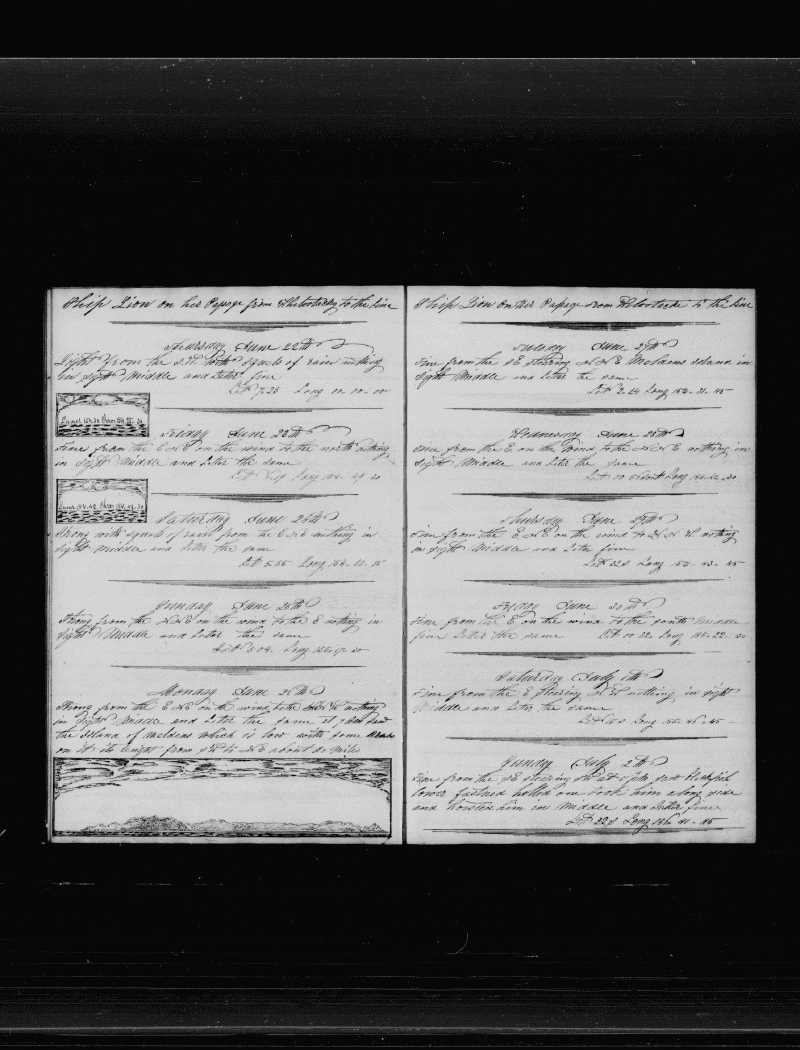 Ship Lion on her Passage from to the Line
Thursday June 22th
Light from the with squals of rain nothing
in sight Middle and Later fine
Lat 7.28 Long 00-00-00
Friday June 23th
Fine from the E N E on the wind to the north nothing
in sight Middle and Later the same
Long 154-49-30
Saturday June 24th
Strong with squals of rain from the E N E nothing in
sight Middle and Later the same
Lat 5.55 Long 154-41-15
Sunday June 25th
Strong from the on the wind to the E nothing in
sight Middle and Later the same
Lat 5.04 Long
Monday June 26th
Strong from the E N E on the wind to the nothing
in sight Middle and Later the same at 7 AM
the Island of Meldens which is low with some
on it its lenght from SW to NE about miles
Ship Lion on her Passage from to the Line
Tuesday June 27th
Fine from the SE stearing N N E Meldens Island in
sight Middle and Later the same
Lat 2-24 Long 154-31-45
Wednesday June 28th
Fine from the E on the wind to the N N E nothing in
sight Middle and Later the same
Lat 00 Long 154-42-30
Thursday June 29th
Fine from the E N E on the wind to nothing
in sight Middle and Later fine
Long 154-43-45
Friday June 30th
Fine from the E on the wind to the south Middle
fine Later the same Lat 00 32 Long 153-22-30
Saturday July 1th
Fine from the E stearing nothing in sight
Middle and Later the same
Long 155-45-45
Sunday July 2th
Fine from the SE stearing
lower fastned holled one took him along side
and howsted him in Middle and Later fine
Lat 22 S Long 156-41-45